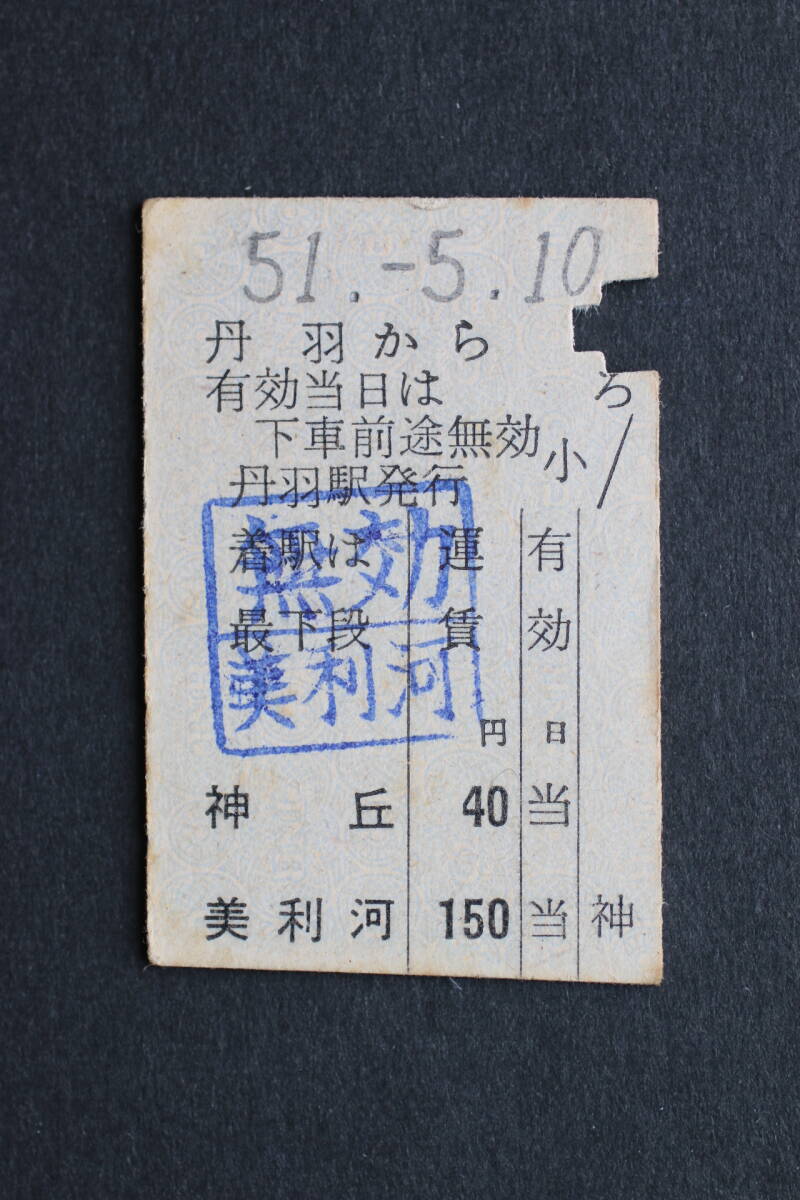 51.-5.10
丹羽から
有効当日は ろ
下車前途無効 小
丹羽駅発行
着駅は 運 有
最下段 賃 効
無効
美利河
円 日
神丘 40 当
美利河 150 当 神